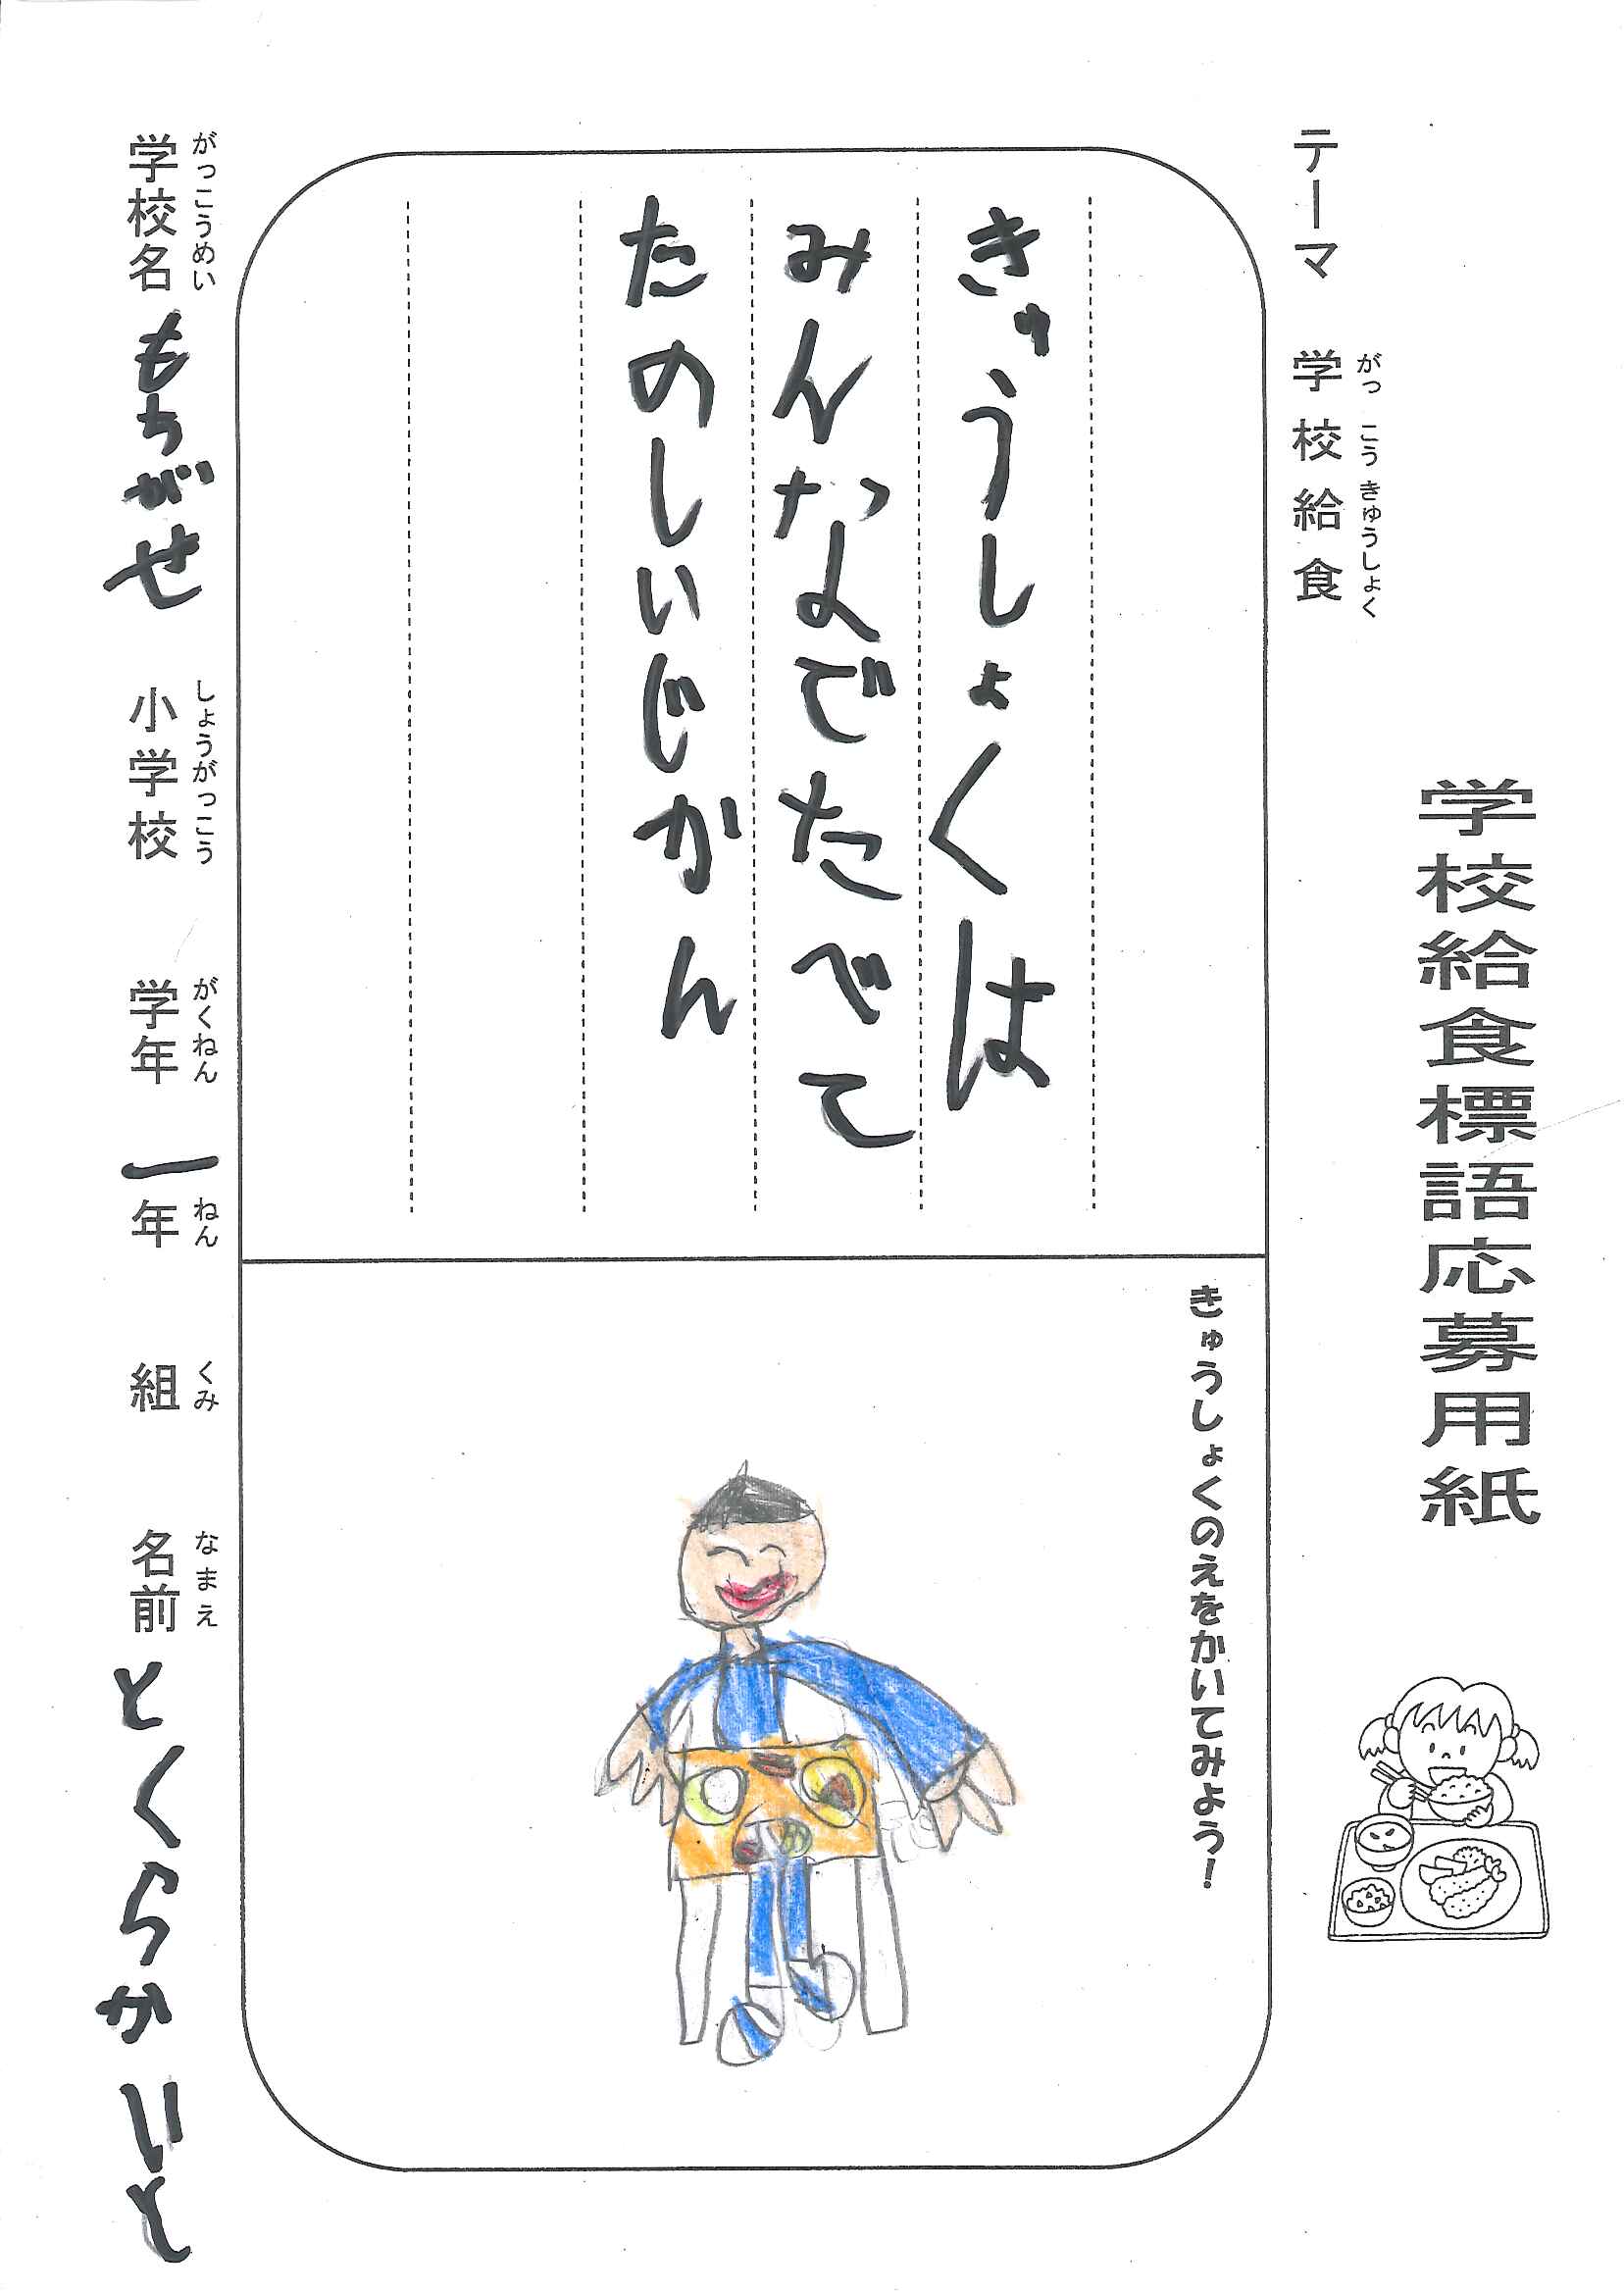 学校給食標語応募用紙
テーマ 学校給食
がっこうきゅうしょく
きゅうしょくは
みんなでたべて
たのしいじかん
きゅうしょくのえをかいてみよう!
がっこうめい しょうがっこう がくねん ねん くみ なまえ
学校名 もちがせ 小学校 学年 一年 組 名前 とくらかいと